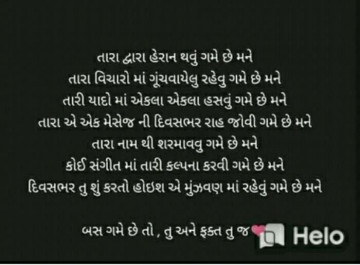 તારા દ્વારા હેરાન થવું ગમે છે મને
તારા વિચારો માં ગૂંચવાયેલુ રહેવુ ગમે છે મને
તારી યાદો માં એકલા એકલા હસવું ગમે છે મને
તારા એ એક મેસેજ ની દિવસભર રાહ જોવી ગમે છે મને
તારા નામ થી શરમાવવુ ગમે છે મને
કોઈ સંગીત માં તારી કલ્પના કરવી ગમે છે મને
દિવસભર તુ શું કરતો હોઇશ એ મુંઝવણ માં રહેવું ગમે છે મને
બસ ગમે છે તો , તુ અને ફક્ત તુ જ❤️
Helo